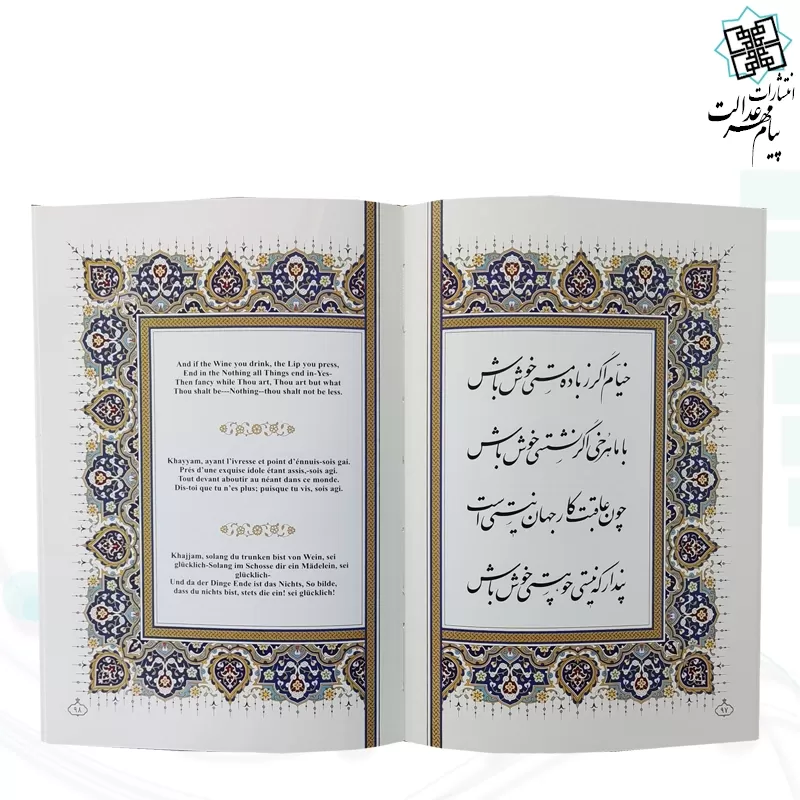 انتشارات
پیام مهر عدالت
خیام اگر ز باده مستی خوش باش
با ماهرخی اگر نشستی خوش باش
چون عاقبت کار جهان نیستی است
پندار که نیستی چو هستی خوش باش
۹۷
And if the Wine you drink, the Lip you press,
End in the Nothing all Things end in-Yes-
Then fancy while Thou art, Thou art but what
Thou shalt be—Nothing--thou shalt not be less.
Khayyam, ayant l'ivresse et point d'énnuis-sois gai.
Prés d'une exquise idole étant assis,-sois agi.
Tout devant aboutir au néant dans ce monde.
Dis-toi que tu n'es plus; puisque tu vis, sois agi.
Khajjam, solang du trunken bist von Wein, sei
glücklich-Solang im Schosse dir ein Mädelein, sei
glücklich-
Und da der Dinge Ende ist das Nichts, So bilde,
dass du nichts bist, stets die ein! sei glücklich!
۹۸